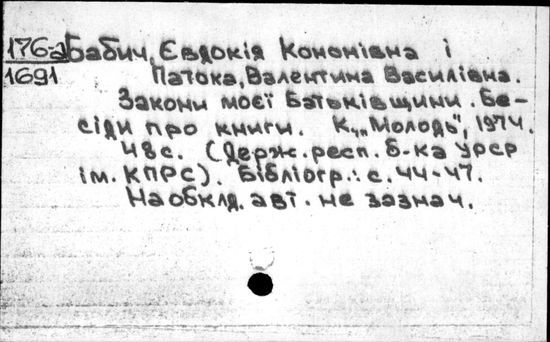 176-а Бабич, Євдокія Кононівна і
1691 Патока, Валентина Василівна.
Закони моєї Батьківщини. Бе-
сіди про книги. К., „Молодь", 1974.
48с. (Держ. респ. б-ка УРСР
ім. КПРС). Бібліогр.: с. 44-47.
На обкл. авт. не зазнач.